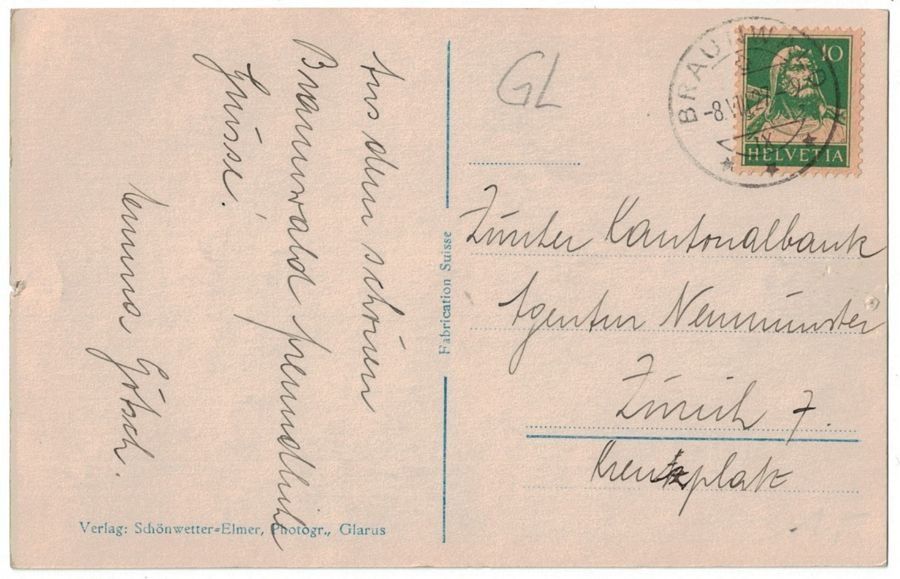 Aus dem schönen
Braunwald freundliche
Grüsse.
Emma Götsch.
Verlag: Schönwetter=Elmer, Photogr., Glarus
Fabrication Suisse
GL
BRAUNWALD
-8.VII.27
IX
10
HELVETIA
Zürcher Kantonalbank
Agentur Neumünster
Zürich 7.
Kreuzplatz